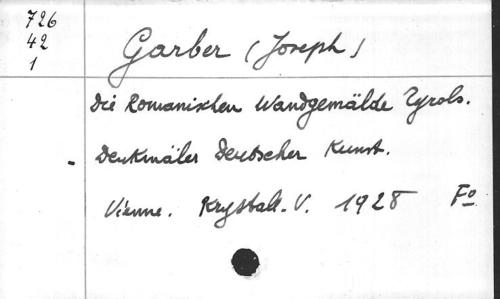 726
42
1
Garber (Joseph)
Die Romanischen Wandgemälde Tyrols.
- Denkmäler Deutscher Kunst.
Vienne. Krystall-V. 1928 Fo